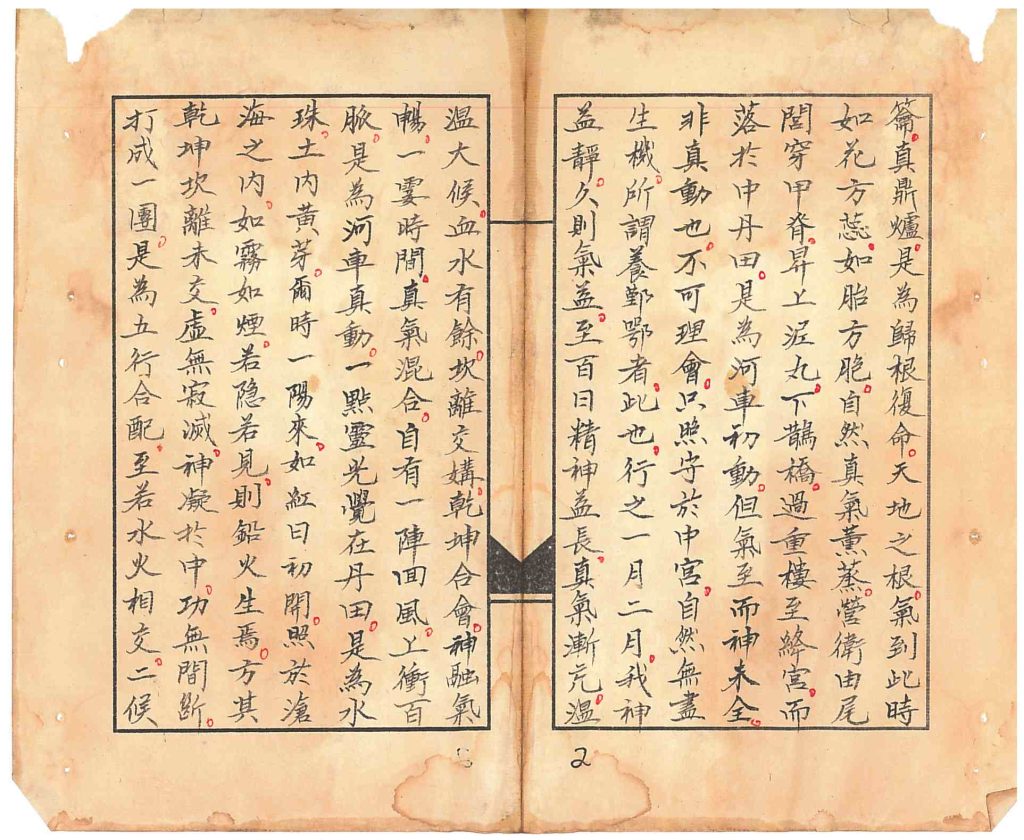 籥。真鼎爐。是為歸根復命。天地之根。氣到此時
如花方蕊。如胎方胞。自然真氣薰蒸。營衛由尾
閭穿甲脊。昇上泥丸。下鵲橋。過重樓至絳宮。而
落於中丹田。是為河車初動。但氣至而神未全。
非真動也。不可理會。只照守於中宮。自然無盡
生機。所謂養鄞鄂者。此也。行之一月二月。我神
益靜。久則氣益。至百日精神益長。真氣漸充。溫
溫大候。血水有餘。坎離交媾。乾坤合會。神融氣
暢。一霎時間。真氣混合。自有一陣回風。上衝百
脈。是為河車真動。一點靈光覺在丹田。是為水
珠。土內黃芽。爾時一陽來。如紅日初開。照於滄
海之內。如霧如煙。若隐若見。則鉛火生焉。方其
乾坤坎離未交。虛無寂滅。神凝於中。功無間斷。
打成一團。是為五行合配。至若水火相交。二候
2